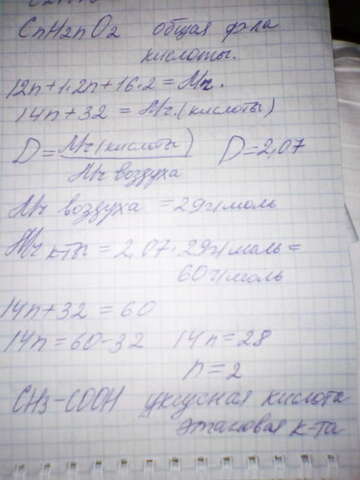 CnH2nO2 общая ф-ла
кислоты.
12n+1·2n+16·2=Mr.
14n+32=Mr.(кислоты)
D=Mr(кислоты) D=2,07
Mr воздуха
Mr воздуха =29г/моль
Mr к-ты = 2,07·29г/моль=
60г/моль
14n+32=60
14n=60-32 14n=28
n=2
CH3-COOH уксусная кислота
этановая к-та